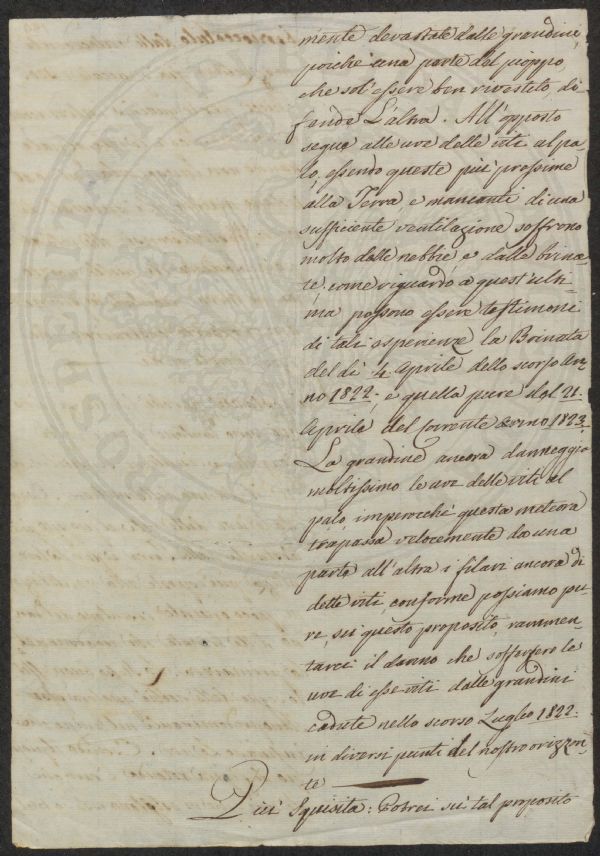 mente devastate dalle grandini,
poiché una parte del pioppo,
che sol'essere ben rivestito di
fende L'altra. All'opposto
segue alle uve delle viti al pa
lo, essendo queste più prossime
alla Terra e mancanti di una
sufficiente ventilazione soffrono
molto dalle nebbie e dalle brina
te, come riguardo a quest'ulti
ma possono essere testimoni
di tali esperienze la Brinata
del dì 4 Aprile dello scorso An
no 1822; e quella pure del 21
Aprile del corrente anno 1823.
La grandine ancora danneggia
moltissimo le uve delle viti al
palo, imperocchè questa meteora
trapassa velocemente da una
parte all'altra i filari ancora di
dette viti, conforme possiamo pu
re, sù questo proposito, rammen
tarci il danno che soffersero le
uve di esse viti dalle grandini
cadute nello scorso Luglio 1822.
in diversi punti del nostro orizzon
te
Più Squisita: Potrei sù tal proposito
PROSPERITATI PUBLICAE